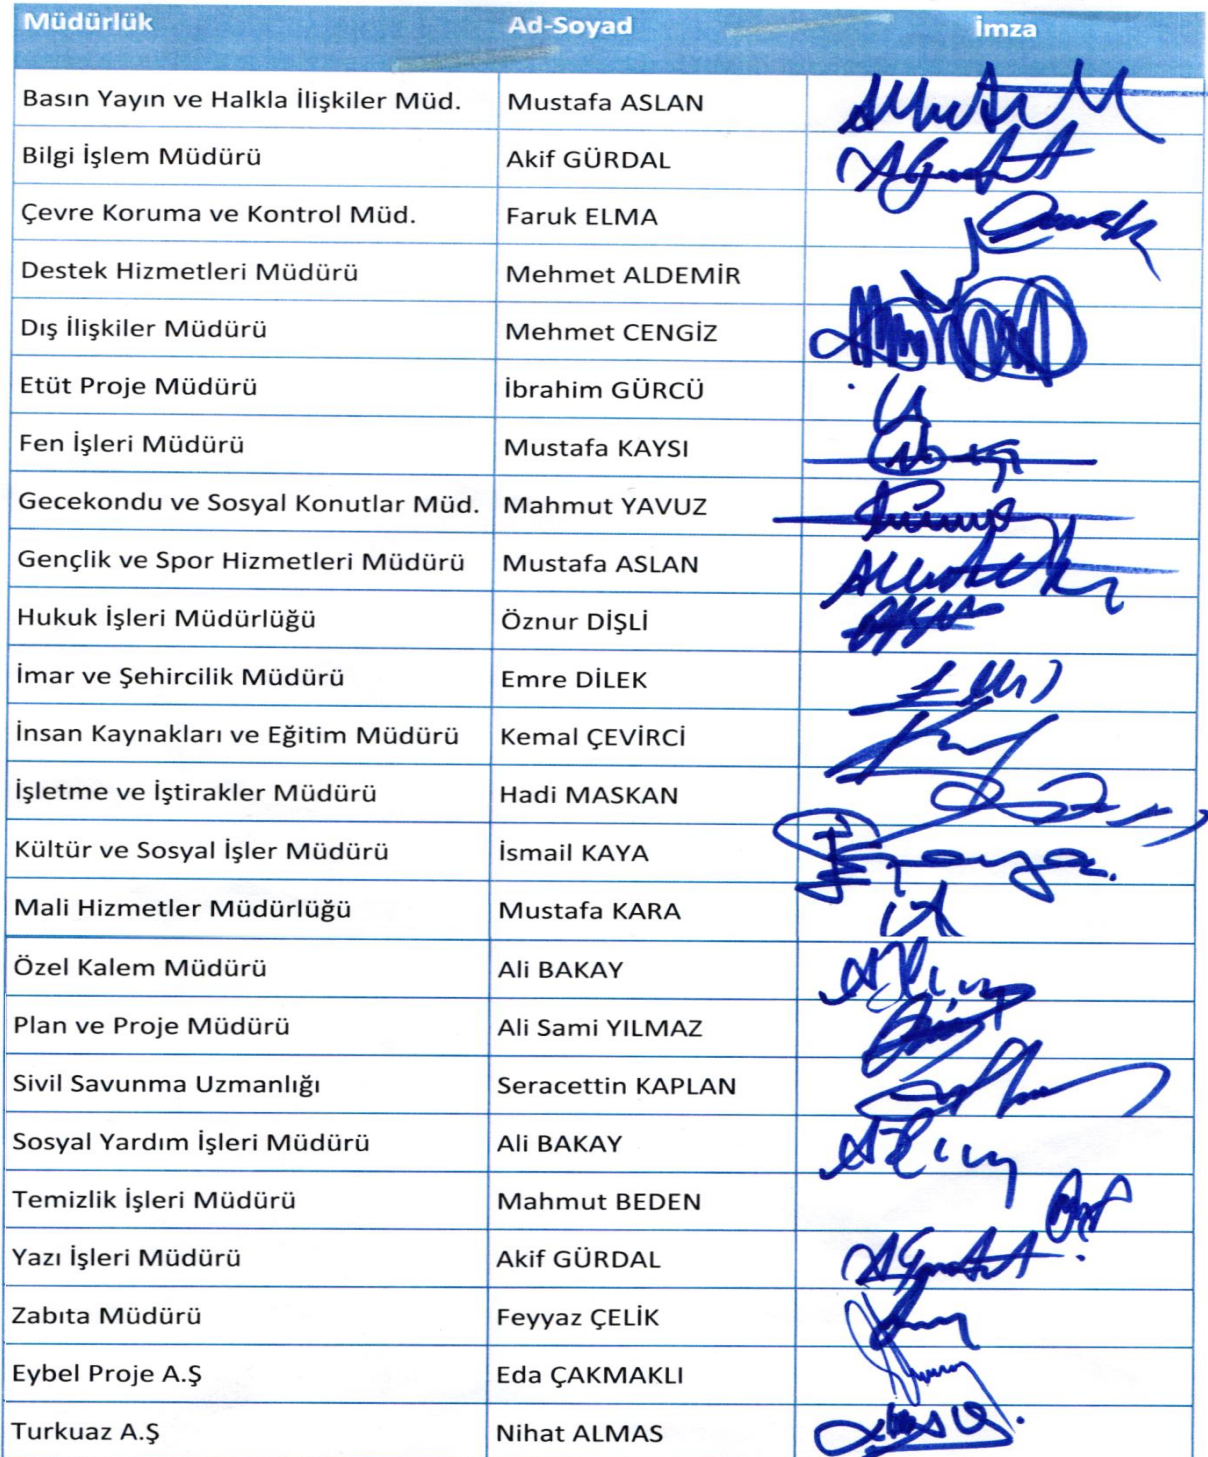 Müdürlük Ad-Soyad İmza
Basın Yayın ve Halkla İlişkiler Müd. Mustafa ASLAN
Bilgi İşlem Müdürü Akif GÜRDAL
Çevre Koruma ve Kontrol Müd. Faruk ELMA
Destek Hizmetleri Müdürü Mehmet ALDEMİR
Dış İlişkiler Müdürü Mehmet CENGİZ
Etüt Proje Müdürü İbrahim GÜRCÜ
Fen İşleri Müdürü Mustafa KAYSI
Gecekondu ve Sosyal Konutlar Müd. Mahmut YAVUZ
Gençlik ve Spor Hizmetleri Müdürü Mustafa ASLAN
Hukuk İşleri Müdürlüğü Öznur DİŞLİ
İmar ve Şehircilik Müdürü Emre DİLEK
İnsan Kaynakları ve Eğitim Müdürü Kemal ÇEVİRCİ
İşletme ve İştirakler Müdürü Hadi MASKAN
Kültür ve Sosyal İşler Müdürü İsmail KAYA
Mali Hizmetler Müdürlüğü Mustafa KARA
Özel Kalem Müdürü Ali BAKAY
Plan ve Proje Müdürü Ali Sami YILMAZ
Sivil Savunma Uzmanlığı Seracettin KAPLAN
Sosyal Yardım İşleri Müdürü Ali BAKAY
Temizlik İşleri Müdürü Mahmut BEDEN
Yazı İşleri Müdürü Akif GÜRDAL
Zabıta Müdürü Feyyaz ÇELİK
Eybel Proje A.Ş Eda ÇAKMAKLI
Turkuaz A.Ş Nihat ALMAS